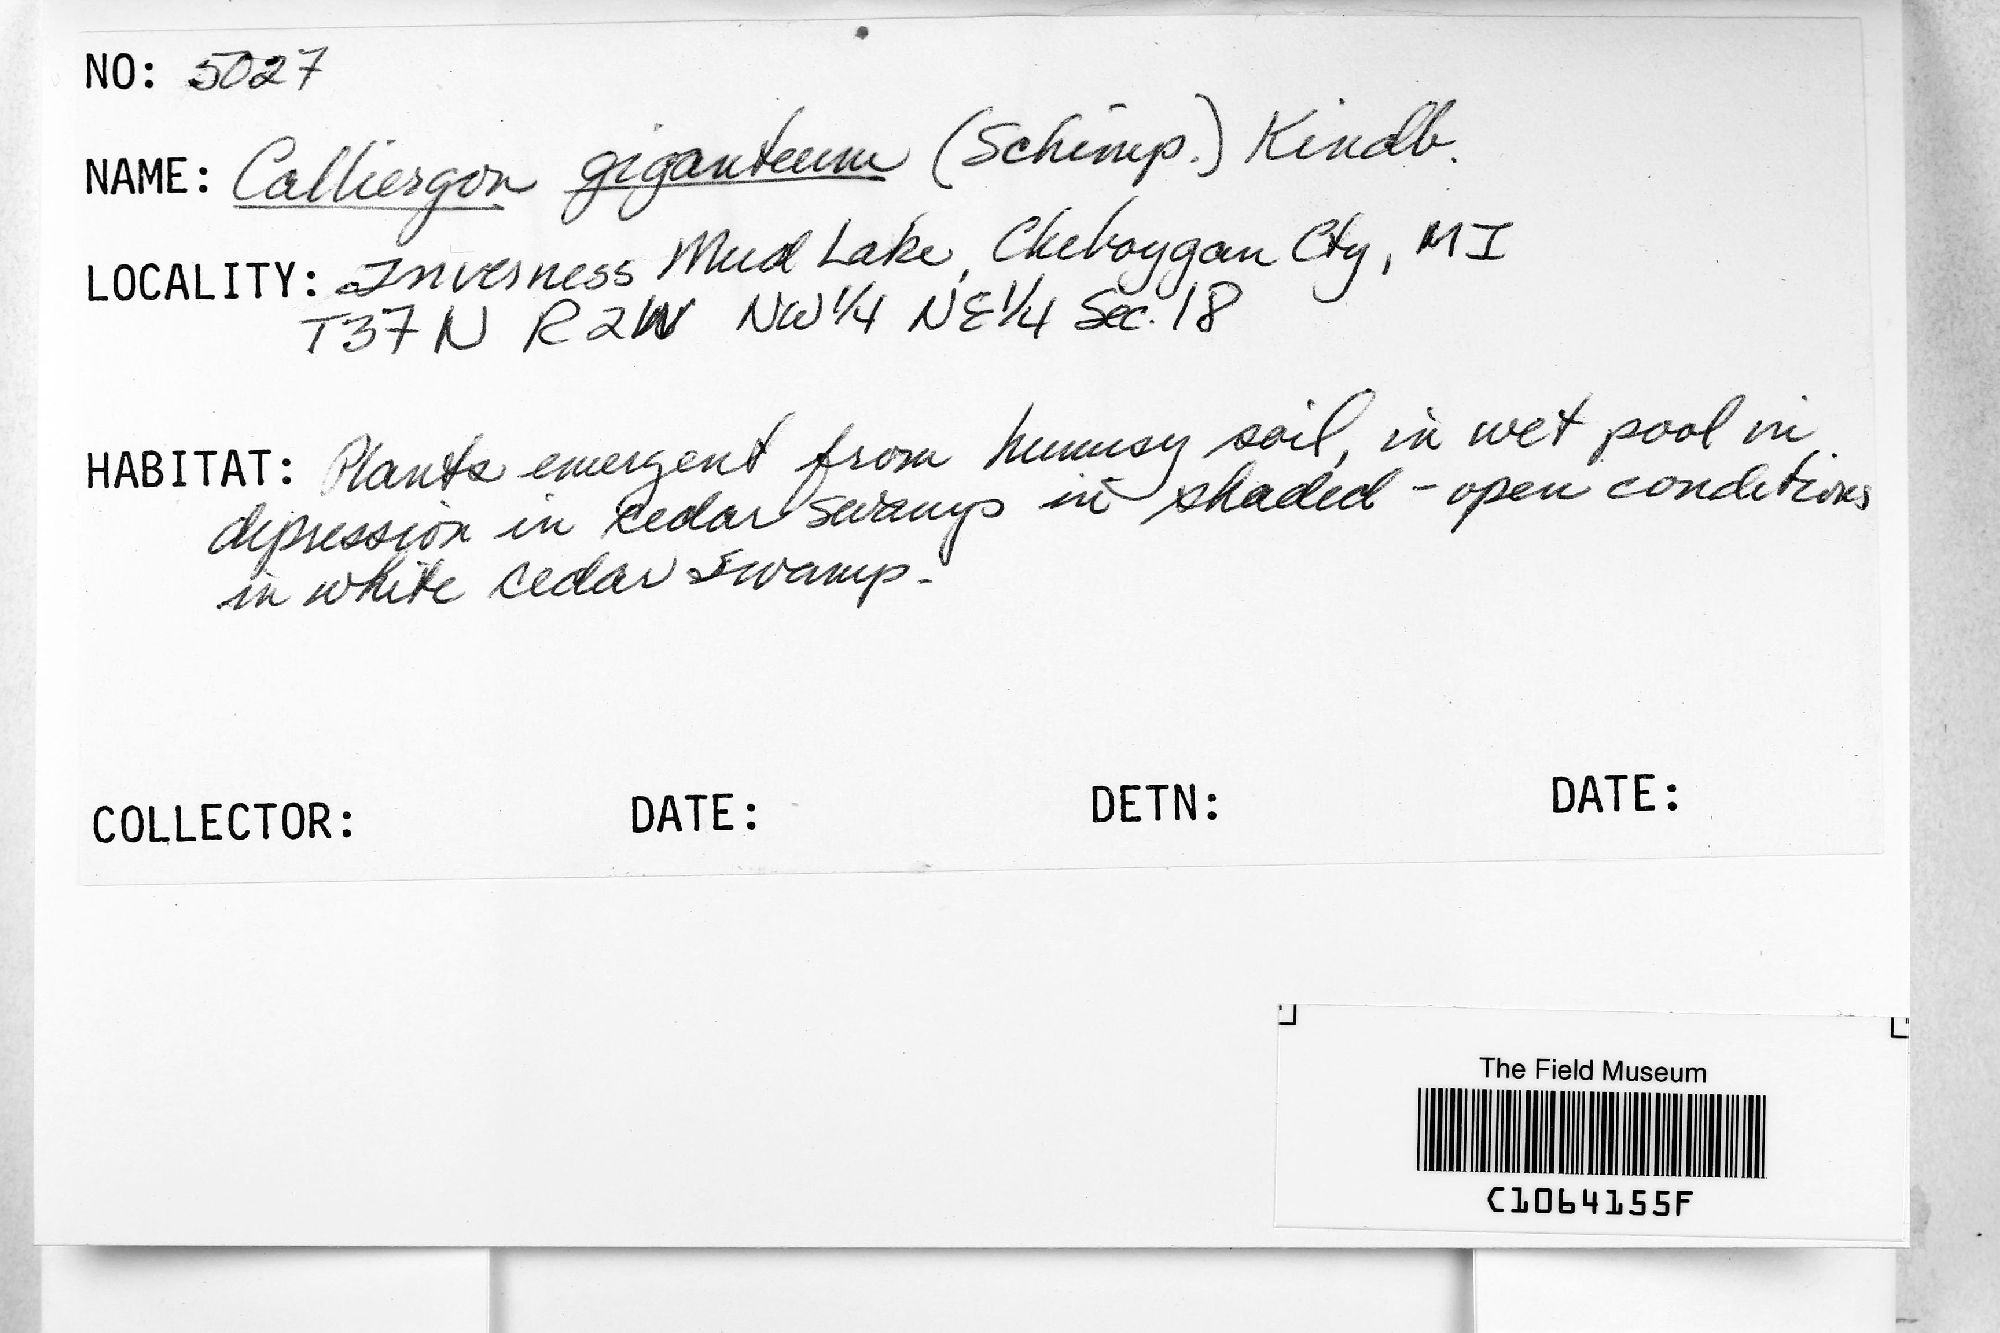 NO: 5027
NAME: Calliergon giganteum (Schimp.) Kindb.
LOCALITY: Inverness Mud Lake, Cheboygan Cty, MI
T37N R2W NW1/4 NE1/4 Sec. 18
HABITAT: Plants emergent from humusy soil, in wet pool in
depression in cedar swamps in shaded - open conditions
in white cedar swamp.
COLLECTOR: DATE: DETN: DATE:
The Field Museum
C1064155F